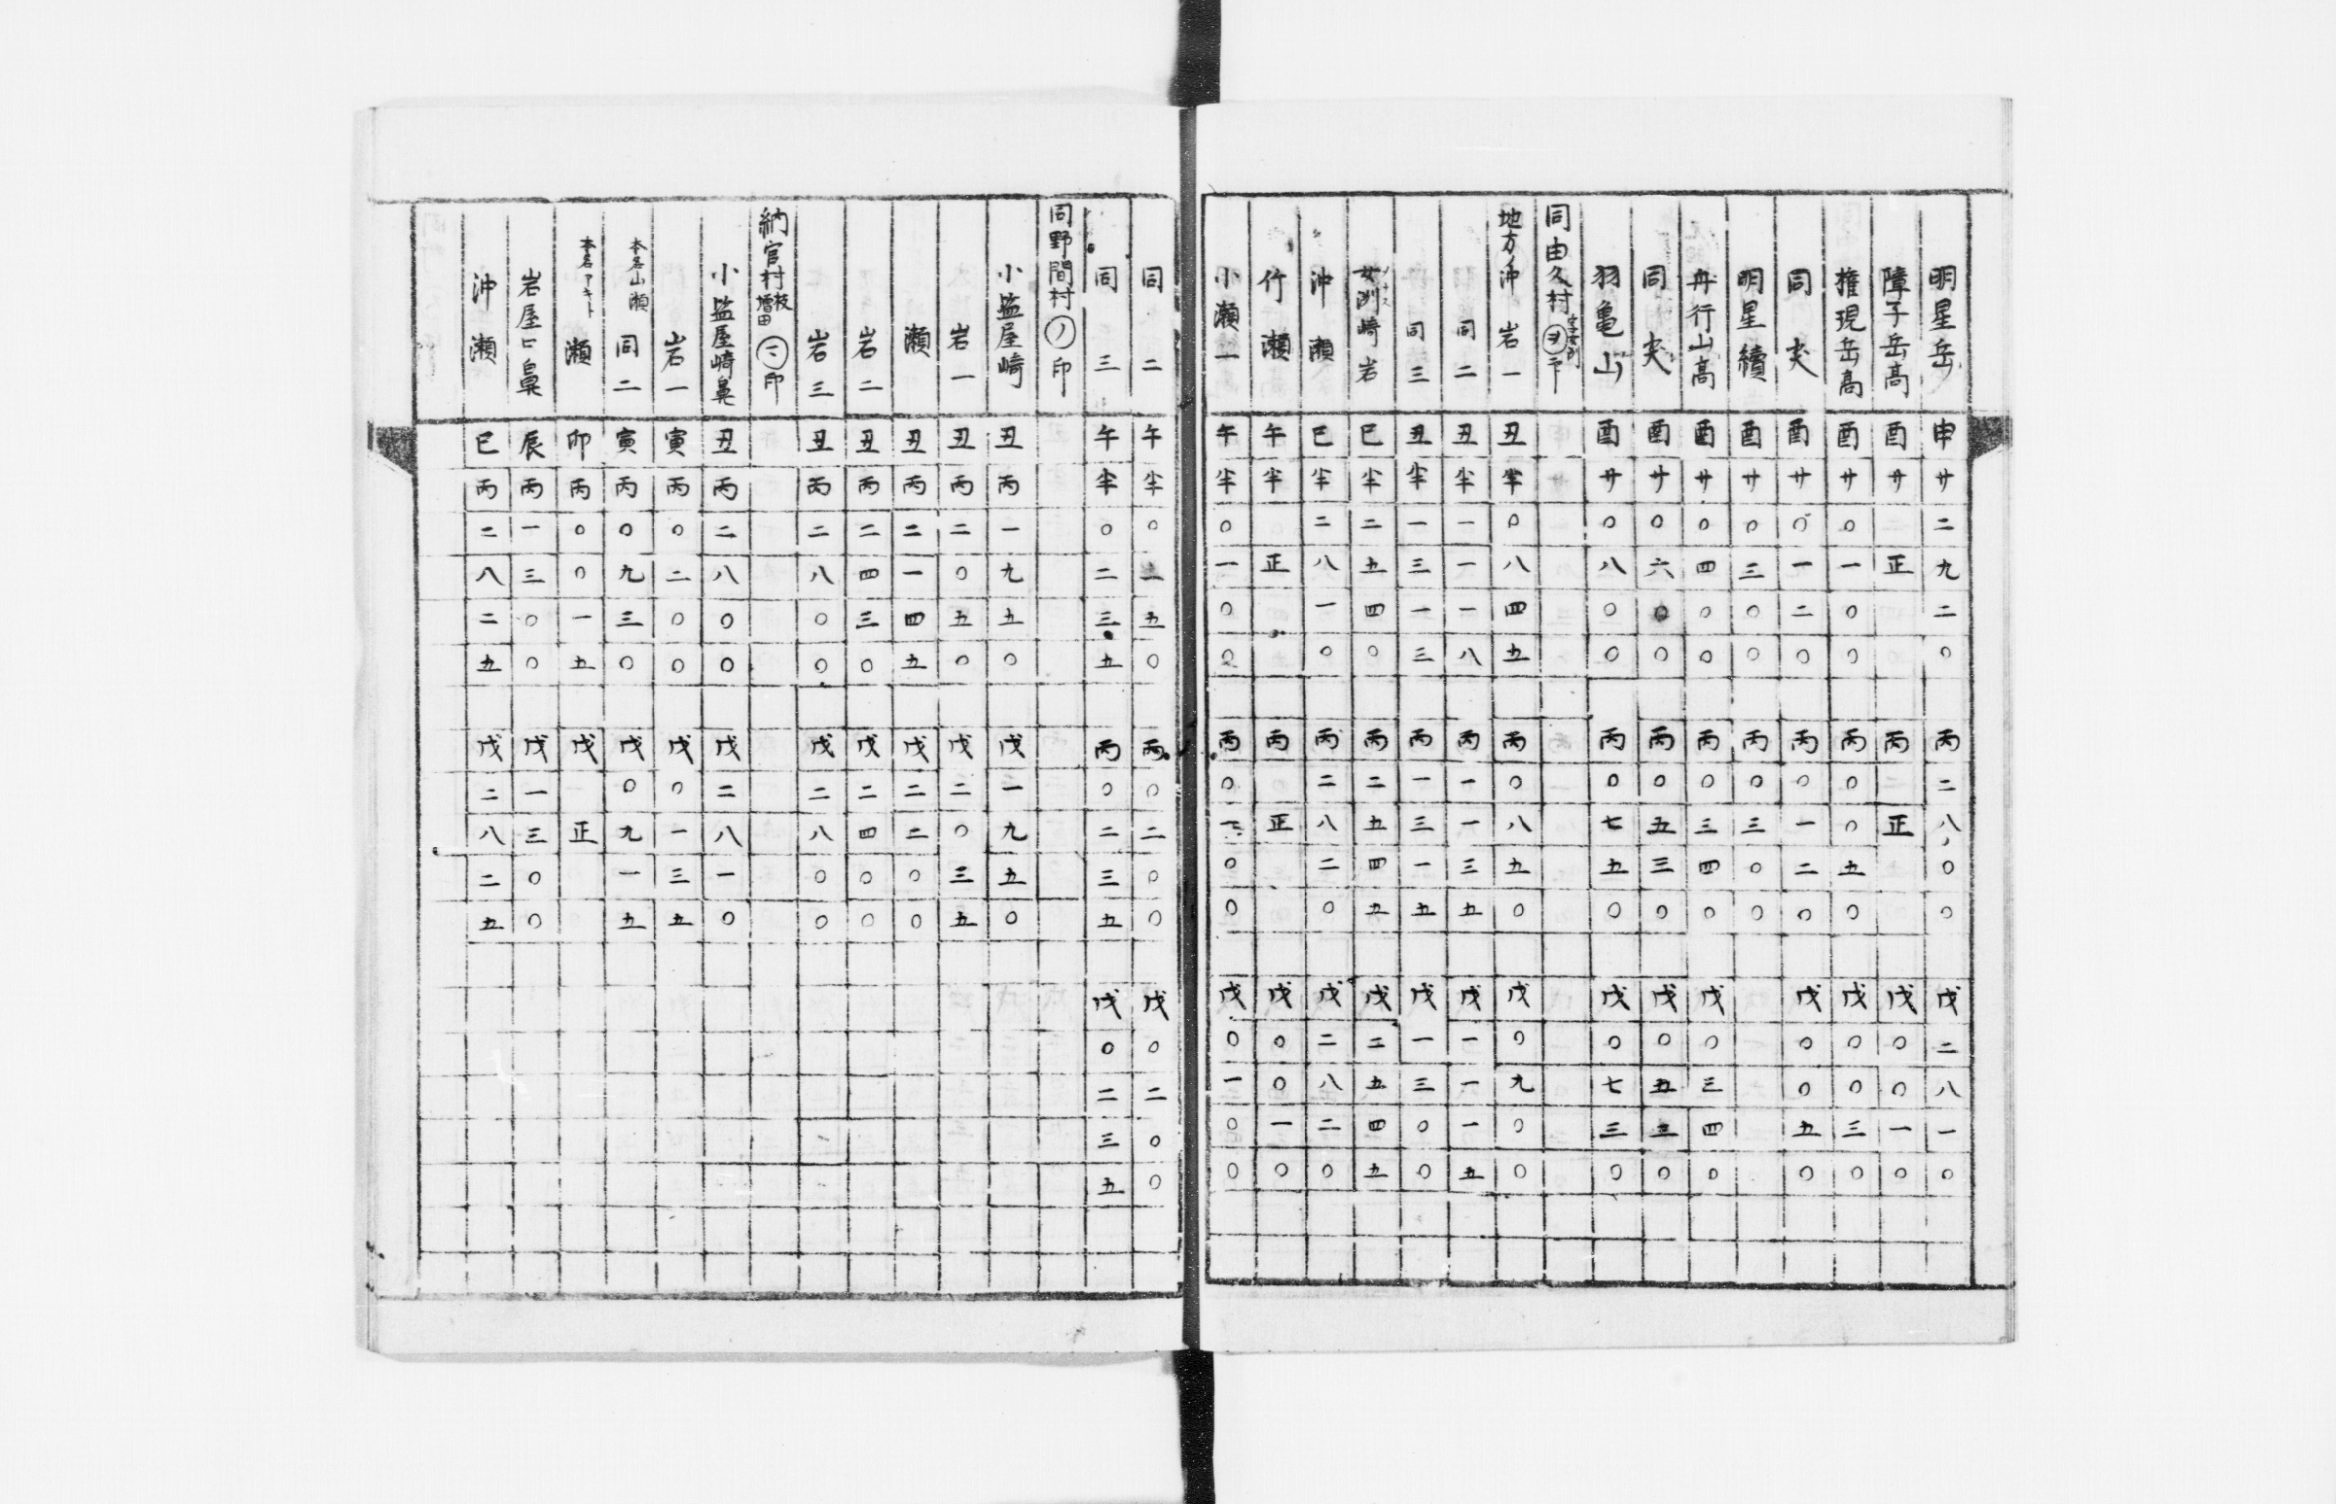 明星岳 申 廿 二 九 二 〇 丙 二 八 〇 〇 戊 二 八 一 〇
障子岳高 酉 廿 正 丙 正 戊 〇 〇 一 〇
権現岳高 酉 廿 〇 一 〇 〇 丙 〇 〇 五 〇 戊 〇 〇 三 〇
同 酉 廿 〇 一 二 〇 丙 〇 一 二 〇 戊 〇 〇 五 〇
明星續 酉 廿 〇 三 〇 〇 丙 〇 三 〇 〇
舟行山高 酉 廿 〇 四 〇 〇 丙 〇 三 四 〇 戊 〇 三 四 〇
同 酉 廿 〇 六 〇 〇 丙 〇 五 三 〇 戊 〇 五 三 〇
羽亀山 酉 廿 〇 八 〇 〇 丙 〇 七 五 〇 戊 〇 七 三 〇
同由久村
地方ノ沖岩一 丑 半 〇 八 四 五 丙 〇 八 五 〇 戊 〇 九 〇 〇
同二 丑 半 一 一 一 八 丙 一 一 三 五 戊 一 一 一 五
同三 丑 半 一 三 一 三 丙 一 三 一 五 戊 一 三 〇 〇
女洲崎岩 巳 半 二 五 四 〇 丙 二 五 四 五 戊 二 五 四 五
沖瀬 巳 半 二 八 一 〇 丙 二 八 二 〇 戊 二 八 二 〇
竹瀬 午 半 正 丙 正 戊 〇 〇 一 〇
小瀬一 午 半 〇 一 〇 〇 丙 〇 一 〇 〇 戊 〇 一 〇 〇
同二 午 半 〇 二 五 〇 丙 〇 二 〇 〇 戊 〇 二 〇 〇
同三 午 半 〇 二 三 五 丙 〇 二 三 五 戊 〇 二 三 五
同野間村ノ印
小塩屋崎 丑 丙 一 九 五 〇 戊 一 九 五 〇
岩一 丑 丙 二 〇 五 〇 戊 二 〇 三 五
瀬 丑 丙 二 一 四 五 戊 二 二 〇 〇
岩二 丑 丙 二 四 三 〇 戊 二 四 〇 〇
岩三 丑 丙 二 八 〇 〇 戊 二 八 〇 〇
納官村枝増田 印
小塩屋崎鼻 丑 丙 二 八 〇 〇 戊 二 八 一 〇
岩一 寅 丙 〇 二 〇 〇 戊 〇 一 三 五
本名山瀬 同二 寅 丙 〇 九 三 〇 戊 〇 九 一 五
本名アキト 瀬 卯 丙 〇 〇 一 五 戊 正
岩屋口鼻 辰 丙 一 三 〇 〇 戊 一 三 〇 〇
沖瀬 巳 丙 二 八 二 五 戊 二 八 二 五